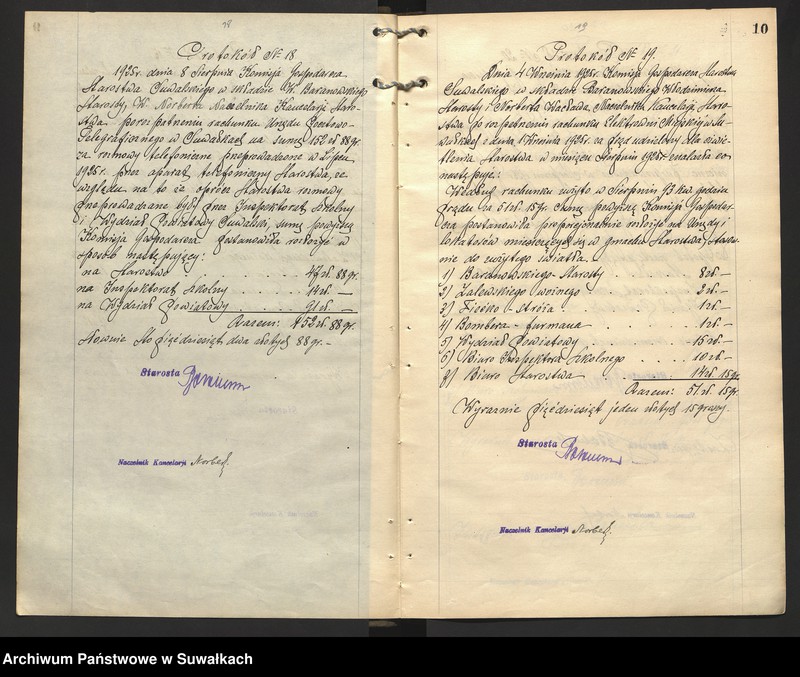 18
Protokół № 18
1925r. dnia 8 Sierpnia Komisja Gospodarcza
Starostwa Suwalskiego w składzie W. Baranowskiego
Starosty, W. Norberta Naczelnika Kancelarji Staro-
stwa po rozpatrzeniu rachunku Urzędu Pocztowo-
Telegraficznego w Suwałkach na sumę 152 zł 88 gr.
za rozmowy telefoniczne przeprowadzone w Lipcu
1925r. przez aparat telefoniczny Starostwa, ze
względu na to że oprócz Starostwa rozmowy
przeprowadzane były przez Inspektorat Szkolny
i Wydział Powiatowy Suwalski, sumę powyższą
Komisja Gospodarcza postanowiła rozłożyć w
sposób następujący:
na Starostwo . . . . . 47 zł. 88 gr.
na Inspektorat Szkolny . . . . 14 zł. —
na Wydział Powiatowy . . . . 91 zł. —
Razem: 152 zł. 88 gr.
Słownie Sto pięćdziesiąt dwa złotych 88 gr. –
Starosta
Naczelnik Kancelarji Norbert
19
10
Protokół № 19.
Dnia 4 Września 1925r. Komisja Gospodarcza Starostwa
Suwalskiego w składzie Baranowskiego Włodzimierza
Starosty i Norberta Wacława, Naczelnika Kancelarji Staro-
stwa po rozpatrzeniu rachunku Elektrowni Miejskiej w Su-
wałkach z dnia 1 Września 1925r. za prąd udzielony dla oświe-
tlenia Starostwa w miesiącu Sierpniu 1925r. znalazła co
następuje:
Według rachunku zużyto w Sierpniu 73 kw. godzin
prądu za 51 zł. 15 gr. Sumę powyższą Komisja Gospodar-
cza postanowiła proporcjonalnie rozłożyć na Urzędy i
lokatorów mieszczących się w gmachu Starostwa, stosow-
nie do zużytego światła.
1) Baranowskiego - Starosty . . . . 8 zł. —
2) Zalewskiego woźnego . . . . 2 zł. —
3) - Stróża . . . . 1 zł. —
4) Bombera - furmana . . . . 1 zł. —
5) Wydział Powiatowy . . . . 15 zł. —
6) Biuro Inspektora Szkolnego . . . . 10 zł. —
7) Biuro Starostwa . . . . 14 zł. 15 gr.
Razem: 51 zł. 15 gr.
Wyraźnie pięćdziesiąt jeden złotych 15 groszy.
Starosta
Naczelnik Kancelarji Norbert
Archiwum Państwowe w Suwałkach